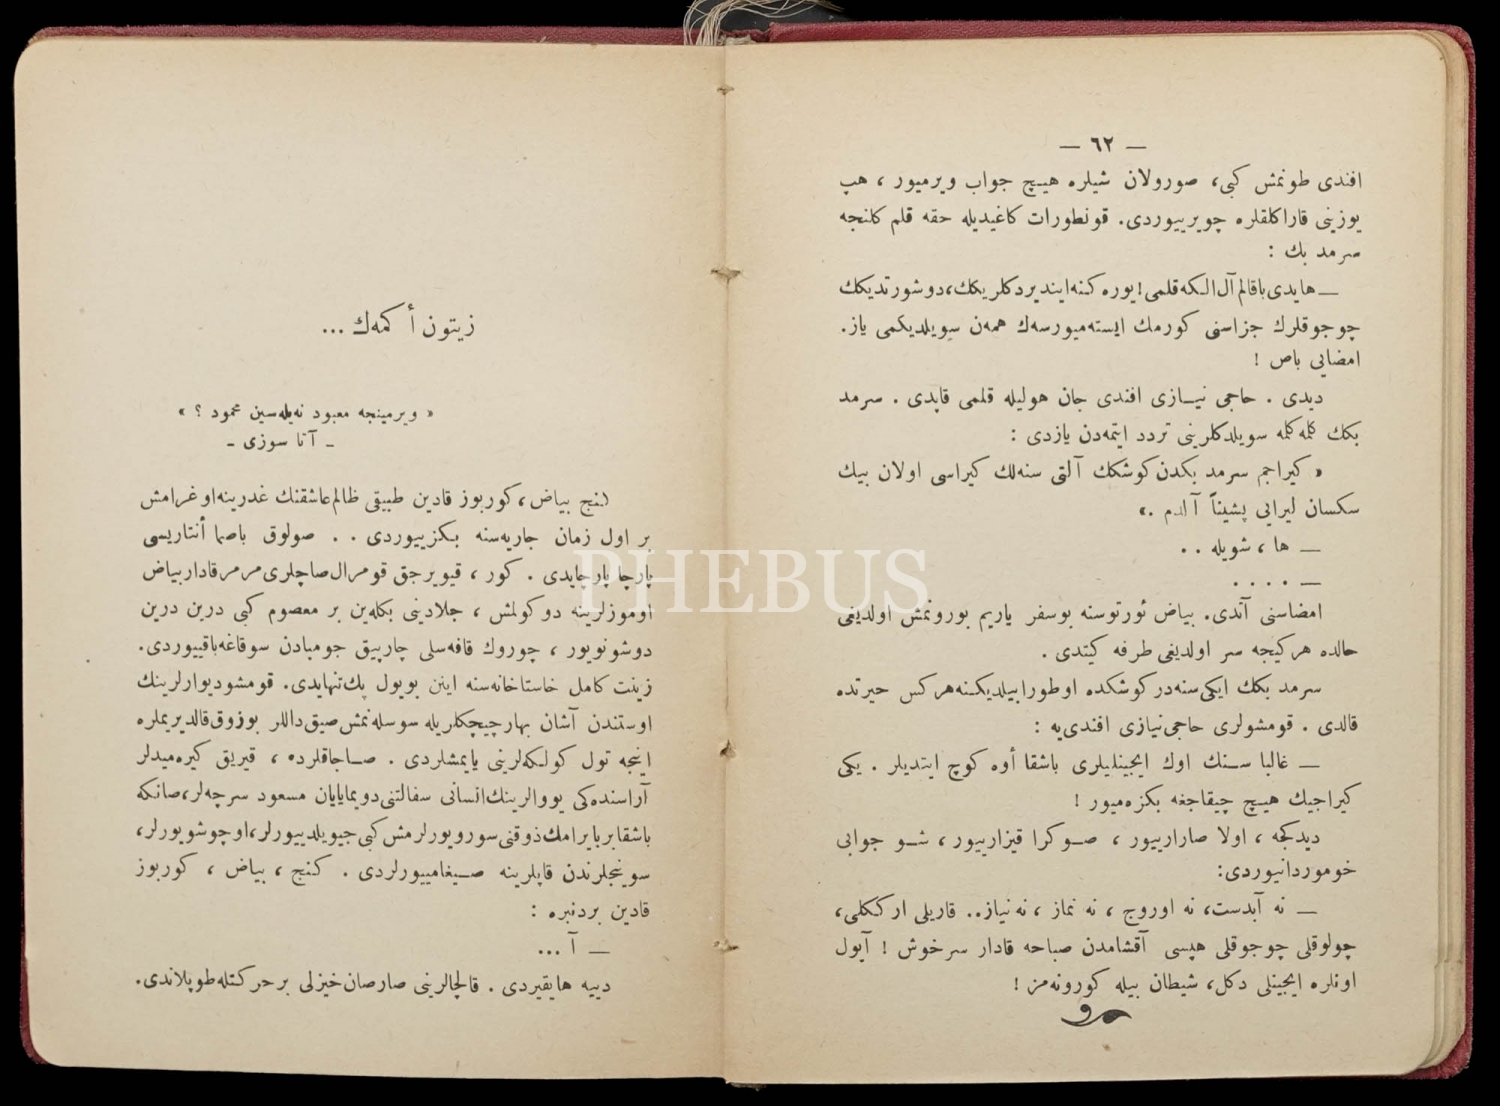 — ٦٢ —
افندی طونمش كبی، صورولان شیلره هیـچ جواب ویرمیور ، هپ
یوزینی قاراكلقلره چویرییوردی. قونطورات كاغیدیله حقه قلم كلنجه
سرمد بك :
— هایدی باقالم آل الـكه قلمی! یوره كـنه ایندیردكلریكك، دوشورتدیكك
چوجوقلرك جزاسنی كورمك ایسته‌میورسه‌ك همه‌ن سویلدیكمی یاز.
امضایی باص !
دیدی . حاجی نیـازی افندی جان هولیله قلمی قاپدی . سرمد
بكك كله كله سویلدكلرینی تردد ایتمه‌دن یازدی :
« كیراجم سرمد بكدن كوشكك آلتی سنه‌لك كیراسی اولان بیك
سكسان لیرایی پشیناً آلدم .»
— ها ، شویله . .
— . . . .
امضاسنی آتدی. بیاض ئورتوسنه بوسفر یاریم بورونمش اولدیغی
حالده هركیجه سر اولدیغی طرفه كیتدی .
سرمد بكك ایكی سنه‌در كوشكده اوطورابیلدیكـنه هركس حیرتده
قالدی . قومشولری حاجی نیازی افندی‌یه :
— غالبا سـنك اوك ایجینلیلری باشقا أوه كوچ ایتدیلر . یكی
كیراجیك هیـچ چیقاجغه بكزه‌میور !
دیدكجه ، اولا صارارییور ، صـوكرا قیزارییور ، شـو جوابی
خوموردانیوردی:
— نه آبدست، نه اوروج ، نه نماز ، نه نیاز.. قاریلی اركـكلی،
چولوقلی چوجوقلی هپسی آقشامدن صباحه قادار سرخوش ! آیول
اونلره ایجینلی دكل، شیطان بیله كورونه‌مز !
زیتون أكمه‌ك ...
« ویرمینجه معبود نه‌یله‌سین محمود ؟ »
ـ آتا سوزی ـ
كنج بیاض ، كوربوز قادین طبیقی ظالم عاشقنك غدرینه اوغرامش
بر اول زمان جاریه‌سنه بـكزییوردی . . صولوق باصما أنتاریسی
پارچا پارچایدی . كور ، قیویرجق قومرال صاچلری مرمر قادار بیاض
اوموزلرینه دوكولمش ، جلادینی بكله‌ین بر معصوم كبی درین درین
دوشونویور ، چوروك قافه‌سلی چارپیق جومبادن سوقاغه باقییوردی.
زینت كامل خاستاخانه‌سنه اینن بویول پك تنهایدی. قومشو دیوارلرینك
اوستندن آشان بهار چیچكلریله سوسله‌نمش صیق داللر بوزوق قالدیریملره
اینجه تول كولـكه‌لرینی یایمشلردی . صـاجاقلرده ، قیریق كیره‌میدلر
آراسنده‌كی یووالرینك انسانی سفالتنی دویمایایان مسعود سرچه‌لر، صانكه
باشقا بر بایرامك ذوقنی سورویورلرمش كبی جیویلدییورلر، اوچوشویورلر،
سوینجلرندن قاپلرینه صـیغامییورلردی . كـنج ، بیاض ، كوربوز
قادین بردنبره :
— آ ...
دییه هایقیردی . قالچالرینی صارصان خیزلی بر حركتله طوپلاندی.
PHEBUS